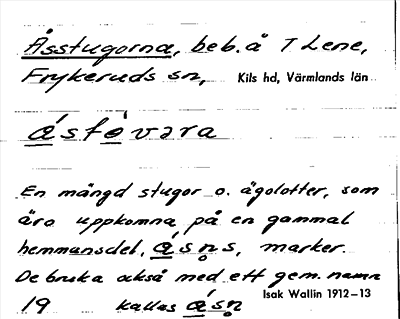 Åsstugorna, beb. å T Lene,
Frykeruds sn, Kils hd, Värmlands län
ástòvara
En mängd stugor o. ägolotter, som
äro uppkomna på en gammal
hemmansdel, ásn̥s, marker.
De bruka också med ett gem. namn
Isak Wallin 1912–13
19 kallas ásn̥